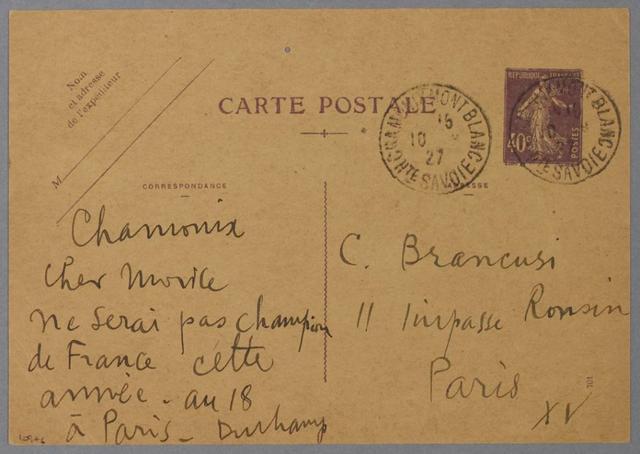 Nom
et adresse
de l'expéditeur
M
CARTE POSTALE
RÉPUBLIQUE FRANÇAISE
40c
POSTES
CHAMONIX-MONT-BLANC
16
10
27
HTE SAVOIE
CORRESPONDANCE
ADRESSE
Chamonix
Cher Morice
ne serai pas champion
de France cette
année - au 18
à Paris - Duchamp
C. Brancusi
11 Impasse Ronsin
Paris
XV
701